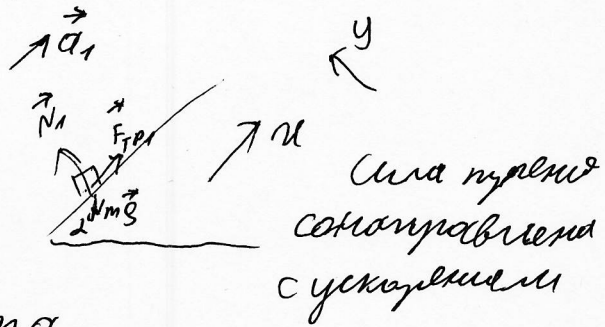 a⃗₁
y
N⃗₁
F⃗тр₁
x
mg⃗
α
Сила трения
сонаправлена
с ускорением